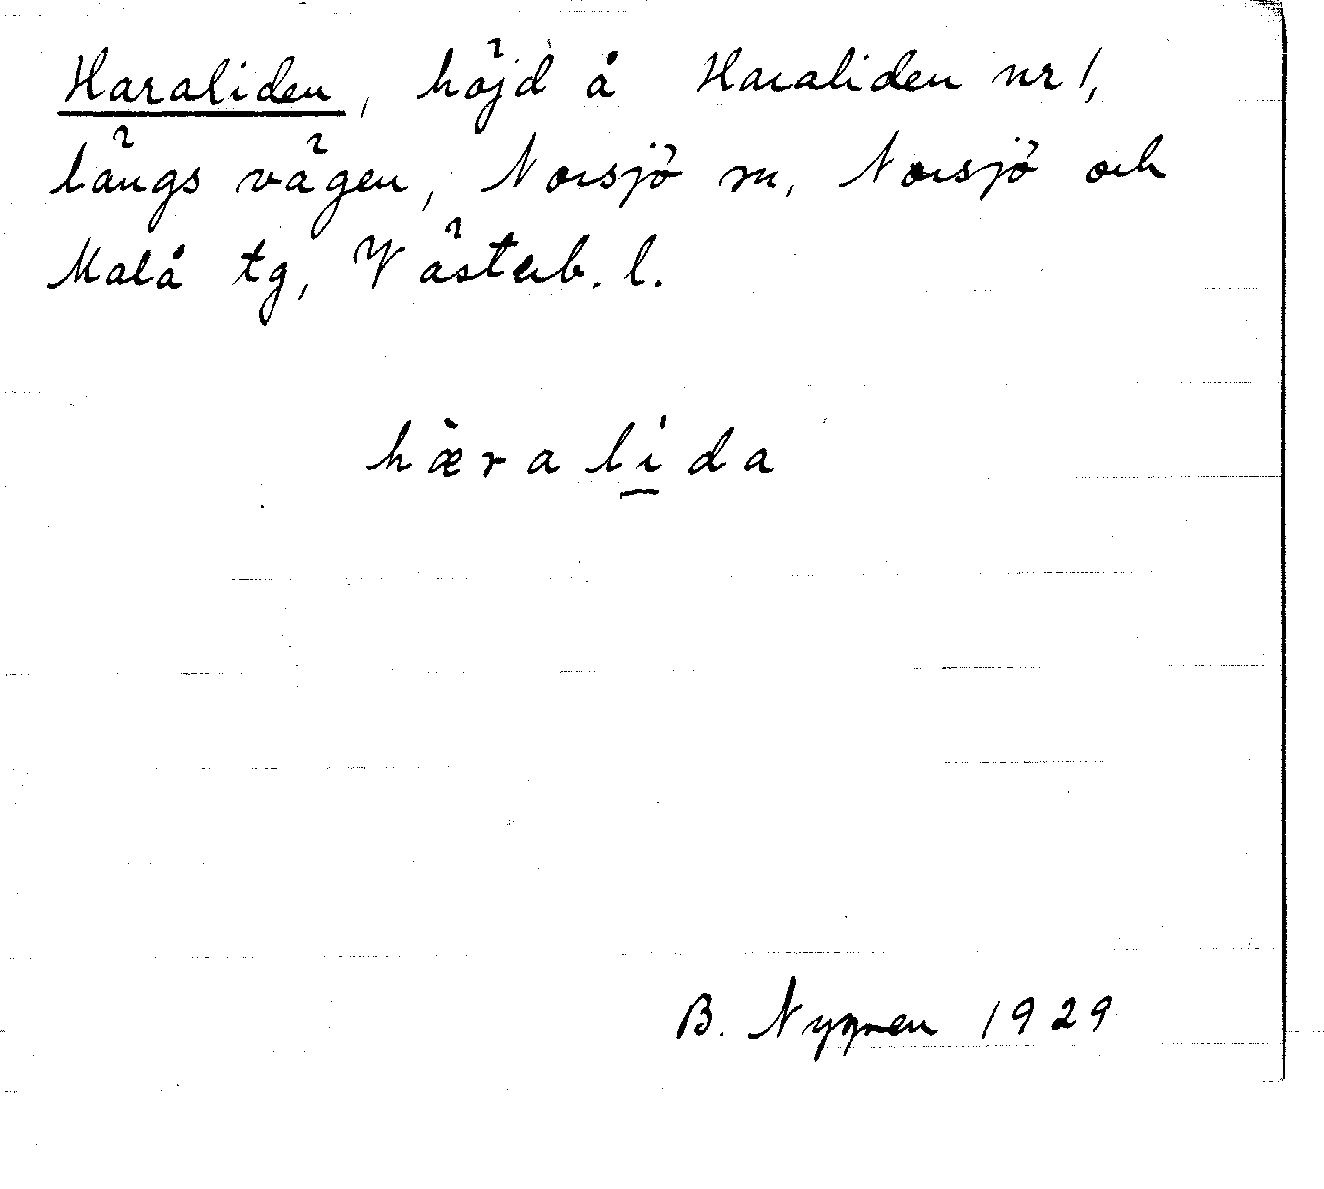 Haraliden, höjd å Haraliden nr 1,
längs vägen, Norsjö sn, Norsjö och
Malå tg, Västerb. l.
hæ̀ralída
B. Nygren 1929